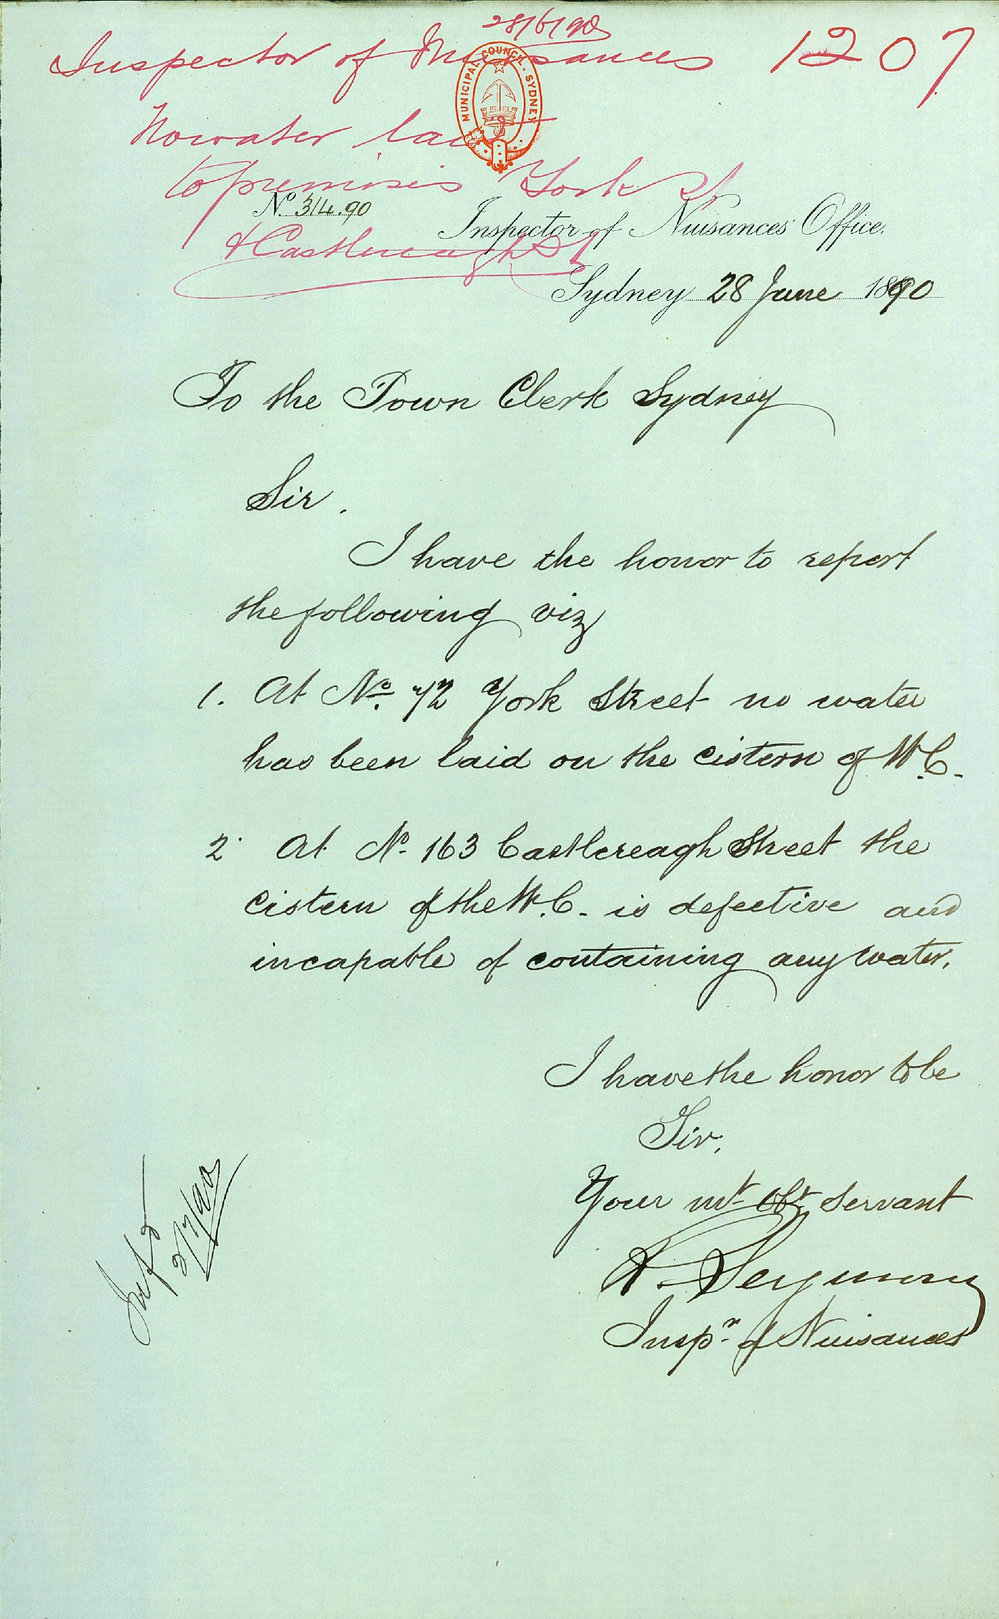 28/6/90
Inspector of Nuisances 1207
MUNICIPAL COUNCIL · SYDNEY
No water laid
to premises York St
No. 314.90
Inspector of Nuisances' Office.
& Castlereagh St
Sydney 28 June 1890
To the Town Clerk Sydney
Sir.
I have the honor to report
the following viz
1. At No. 72 York Street no water
has been laid on the cistern of W.C.
2. At No. 163 Castlereagh Street the
cistern of the W.C. is defective and
incapable of containing any water.
I have the honor to be
Sir,
Your mt. obt. servant
Seymour
Inspr. of Nuisances
2/7/90